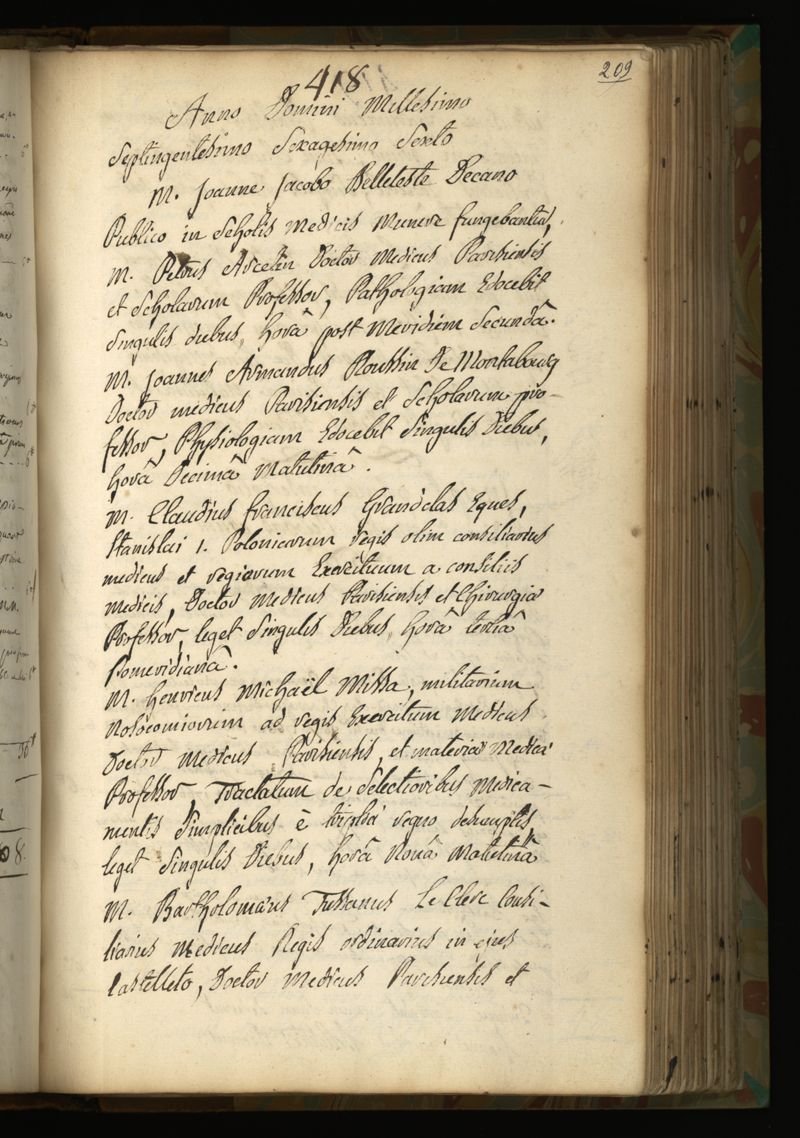 418
209
Anno Domini Millesimo
Septingentesimo Sexagesimo Sexto
M. Joanne Jacobo Belleteste Decano
Publico in Scholis Medicis Munere fungebantur,
M. Petrus Arcelin Doctor Medicus Parisiensis
et Scholarum Professor, Pathologiam Edocebit
Singulis diebus, horâ post Meridiem Secundâ.
M. Joannes Armandus Roussin De Montabourg
Doctor medicus Parisiensis et Scholarum pro-
fessor, Physiologiam Edocebit Singulis Diebus,
horâ Decimâ Matutinâ.
M. Claudius franciscus Grandclas Eques,
Stanislai 1. Poloniarum regis olim consiliarius
medicus et regiorum Exercituum a consiliis
medicis, Doctor Medicus Parisiensis et Chirurgiæ
Professor, leget Singulis Diebus, horâ tertiâ
Pomeridianâ.
M. henricus Michaël Missa, militarium
Nosocomiorum ad regis Exercitum Medicus
Doctor Medicus Parisiensis, et materiæ Medicæ
Professor, Tractatum de Selectioribus Medica-
mentis Simplicibus è triplici regno desumptis,
leget Singulis Diebus, horâ Nonâ Matutinâ
M. Bartholomæus Tussanus Le Clerc Consi-
liarius Medicus Regis ordinarius in ejus
Castelleto, Doctor Medicus Parisiensis et